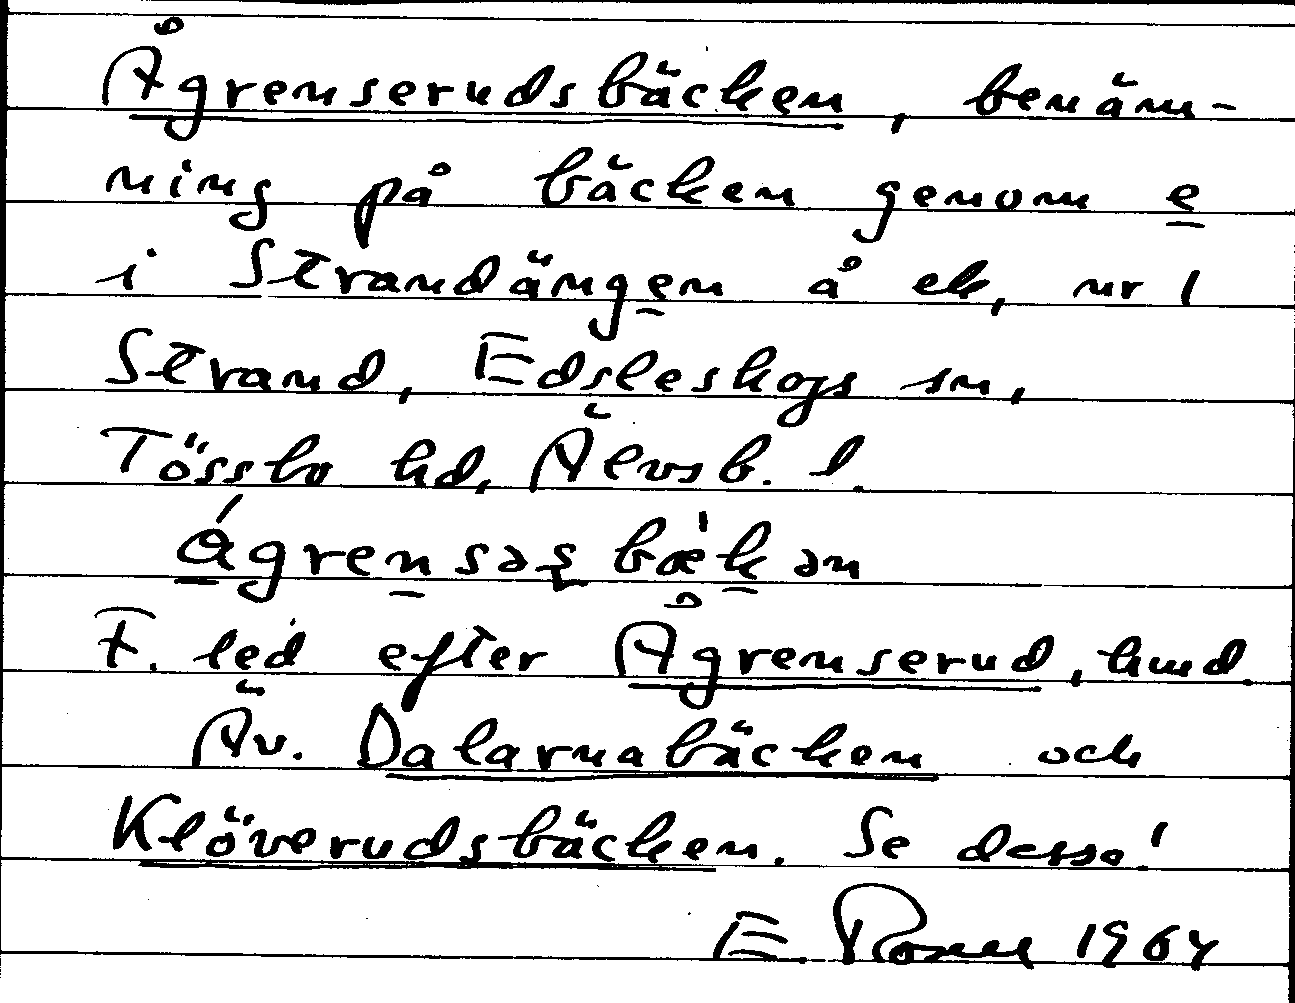 Ågrenserudsbäcken, benäm-
ning på bäcken genom e
i Strandängen å ek, nr 1
Strand, Edsleskogs sn,
Tössbo hd, Älvsb. l.
ágrensəʂbæ'kən
F. led efter Ågrenserud, hmd.
Äv. Dalarnabäcken och
Klöverudsbäcken. Se dessa!
E. 1964